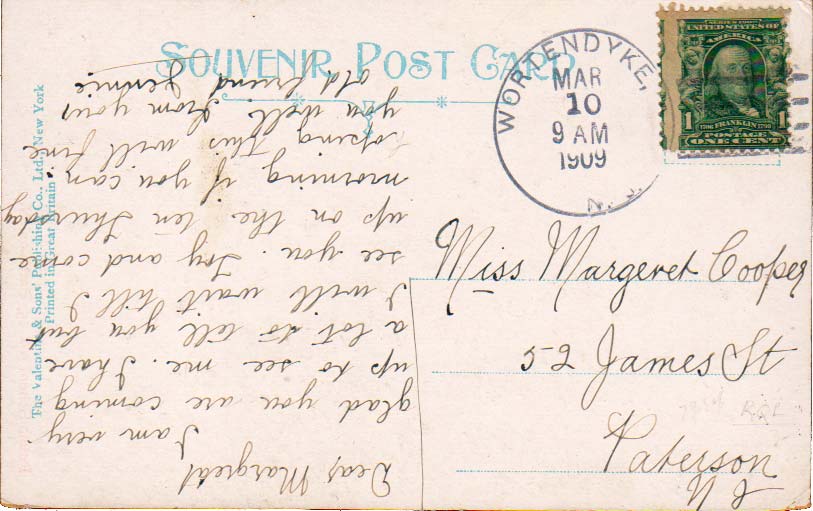 SOUVENIR POST CARD
WORTENDYKE,
MAR
10
9 AM
1909
N. J.
SERIES 1902
UNITED STATES OF
AMERICA
1 1706 FRANKLIN 1790 1
POSTAGE
ONE CENT
Miss Margeret Cooper
52 James St
Paterson
N J
Dear Margreat
I am very
glad you are coming
up to see me. I have
a lot to tell you but
I will wait till I
see you. Try and come
up on the ten Thursday
morning if you can
hoping this will find
you well. From your
old friend Jennie
The Valentine & Sons' Publishing Co., Ltd., New York
Printed in Great Britain